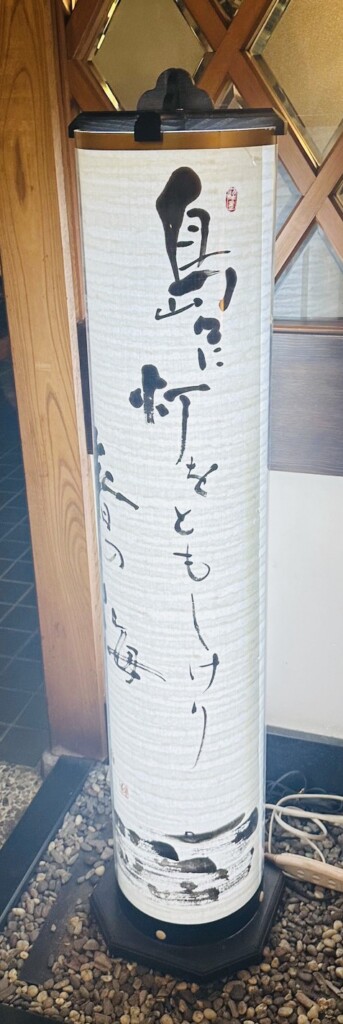 島々に
灯をともしけり
春の海